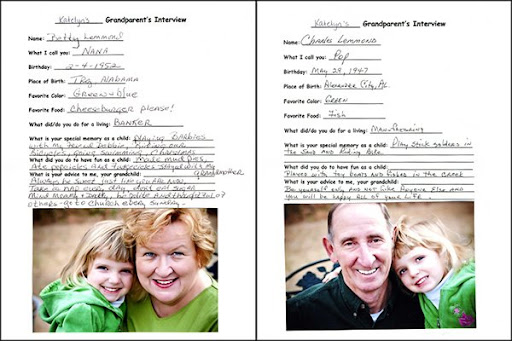 Katelyn's Grandparent's Interview
Name: Betty Lemmond
What I call you: NANA
Birthday: 2-4-1952
Place of Birth: Troy ALABAMA
Favorite Color: Green & blue
Favorite Food: Cheeseburger please!
What did/do you do for a living: BANKER
What is your special memory as a child: playing BARBIES
with my friend Debbie, riding our
Bicycles, going swimming,
What did/do you to have fun as a child: Made mud pies,
Ate popsicles and
What is your advice to me, your grandchild: grandmother
Always be sweet just like you are now.
Take a nap every day, don't eat sugar
Mind Mommy & Daddy, be polite And thoughtful of
others - go to church every Sunday.
Katelyn's Grandparent's Interview
Name: Charles Lemmond
What I call you: Pop
Birthday: May 28, 1947
Place of Birth: Alexander City, AL
Favorite Color: Green
Favorite Food: Fish
What did/do you do for a living: Manufacturing
What is your special memory as a child: Play Stick soldiers in
the Sand and Riding Bike.
What did/do you to have fun as a child:
Played with toy boats and fished in the creek
What is your advice to me, your grandchild:
Be yourself only and not like Anyone Else and
you will be happy All of your life.